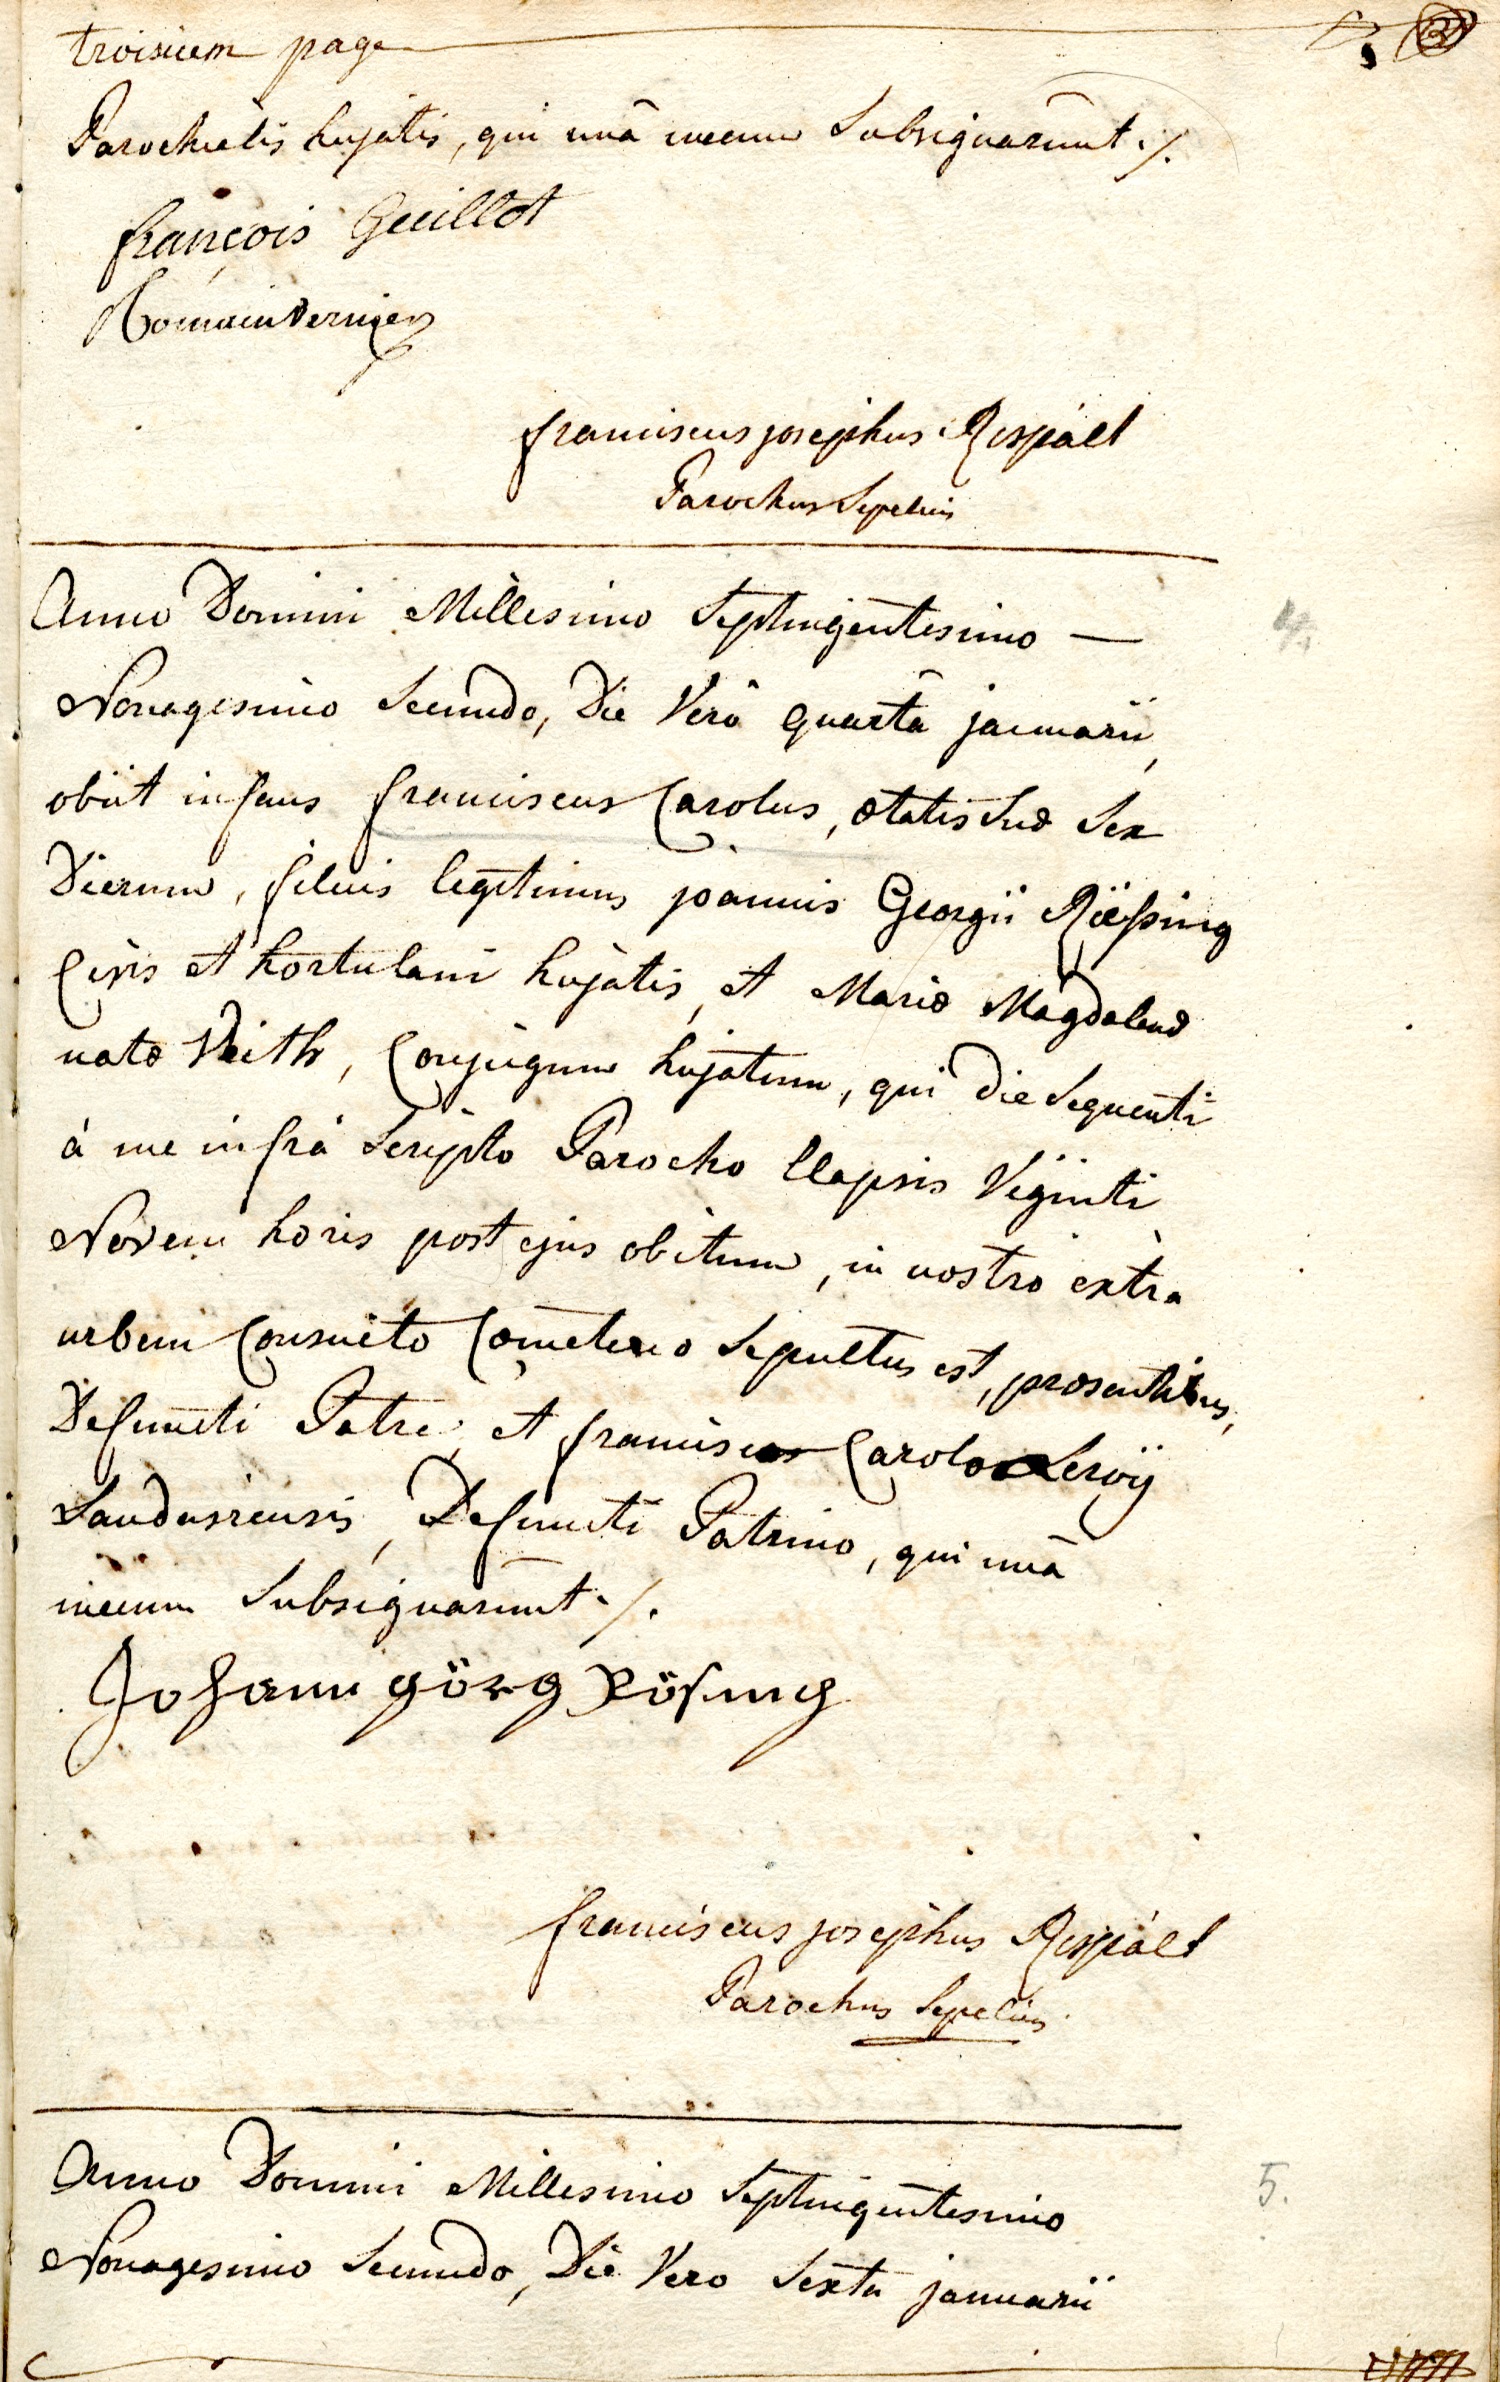 troisiem page 3
Parochialis hujatis, qui unâ mecum Subsignarunt ./.
françois Guillot
Romain Vernier
franciscus josephus Rispált
Parochus Sepeliens
Anno Domini Millesimo Septingentesimo — 4.
Nonagesimo Secundo, Die Verò quartâ januarii,
obiit infans franciscus Carolus, ætatis suæ Sex
Dierum, filius legitimus joannis Georgii Rießing
Civis et hortulani hujatis, et Mariæ Magdalenæ
natæ Veith, Conjugum hujatum, qui die Sequenti
à me infrà Scripto Parocho Elapsis Viginti
Novem horis post ejus obitum, in nostro extra
urbem Consueto Cœmeterio Sepultus est, præsentibus,
Defuncti Patre, et francisco Carolo Leroÿ
Landaviensis, Defuncti Patrino, qui unâ
mecum Subsignarunt ./.
Johann görg Rösing
franciscus josephus Rispált
Parochus Sepeliens
Anno Domini Millesimo Septingentesimo 5.
Nonagesimo Secundo, Die Vero Sexta januarii